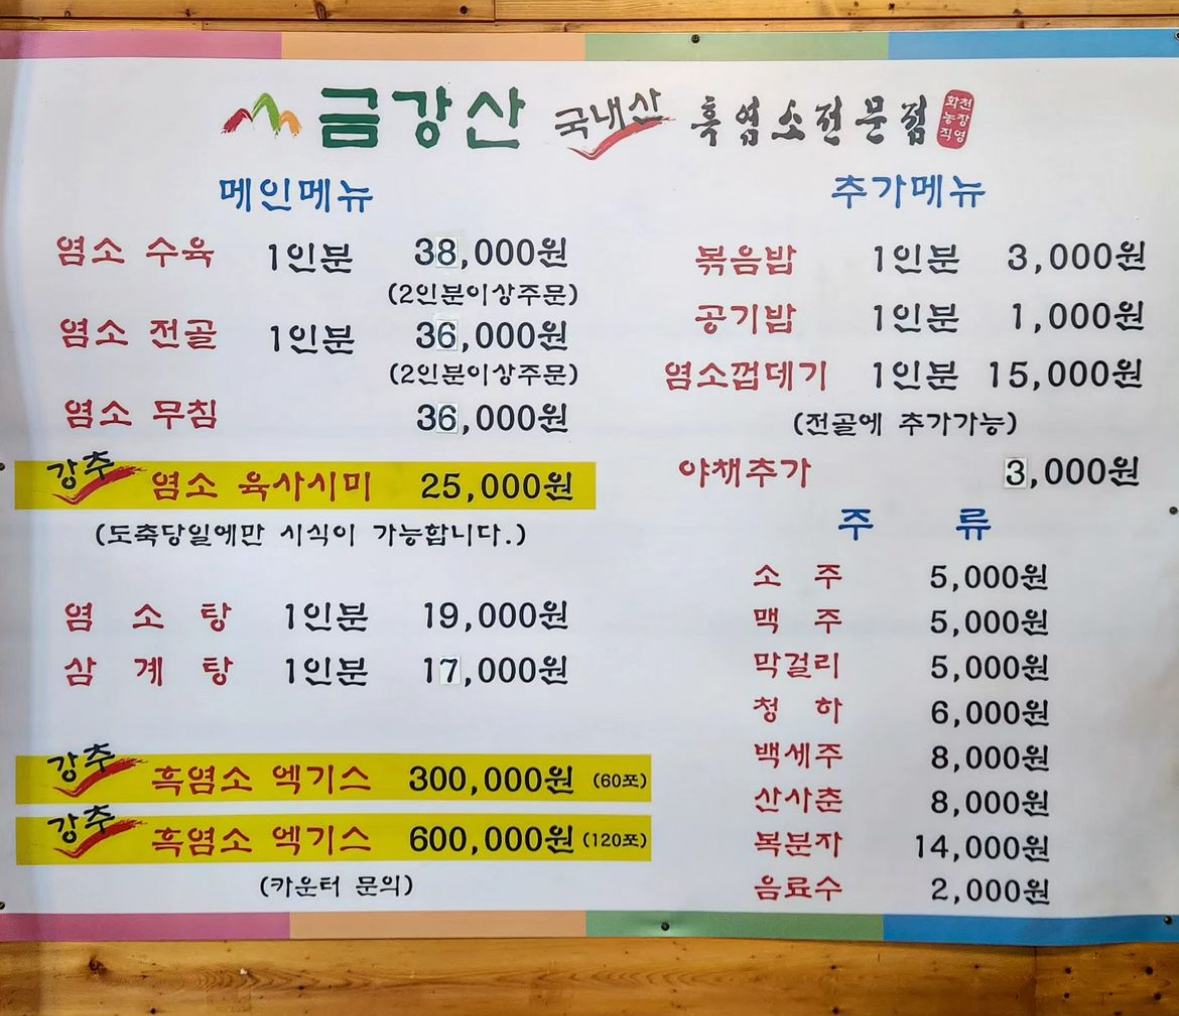 금강산 국내산 흑염소전문점 화천농장직영
메인메뉴
염소 수육 1인분 38,000원
(2인분이상주문)
염소 전골 1인분 36,000원
(2인분이상주문)
염소 무침 36,000원
강추 염소 육사시미 25,000원
(도축당일에만 시식이 가능합니다.)
염 소 탕 1인분 19,000원
삼 계 탕 1인분 17,000원
강추 흑염소 엑기스 300,000원 (60포)
강추 흑염소 엑기스 600,000원 (120포)
(카운터 문의)
추가메뉴
볶음밥 1인분 3,000원
공기밥 1인분 1,000원
염소껍데기 1인분 15,000원
(전골에 추가가능)
야채추가 3,000원
주 류
소 주 5,000원
맥 주 5,000원
막걸리 5,000원
청 하 6,000원
백세주 8,000원
산사춘 8,000원
복분자 14,000원
음료수 2,000원